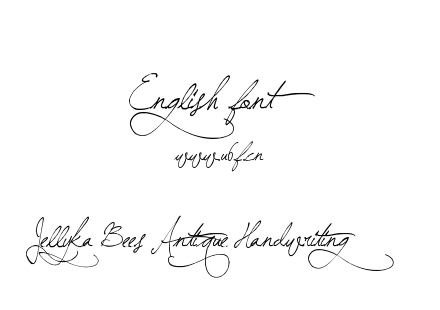 English font
www.u6f.cn
Jellyka Bees Antique Handwriting